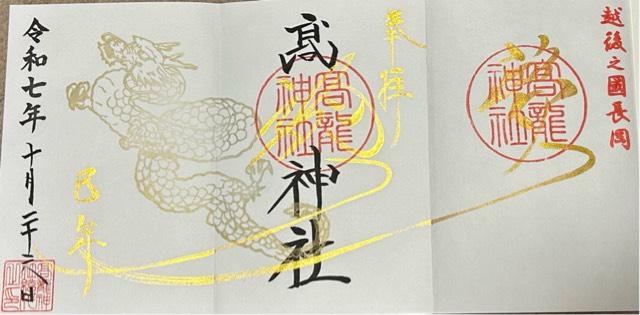 越後之國長岡
高龍
神社
奉拝
髙龍神社
高龍
神社
巳年
令和七年十月二十日